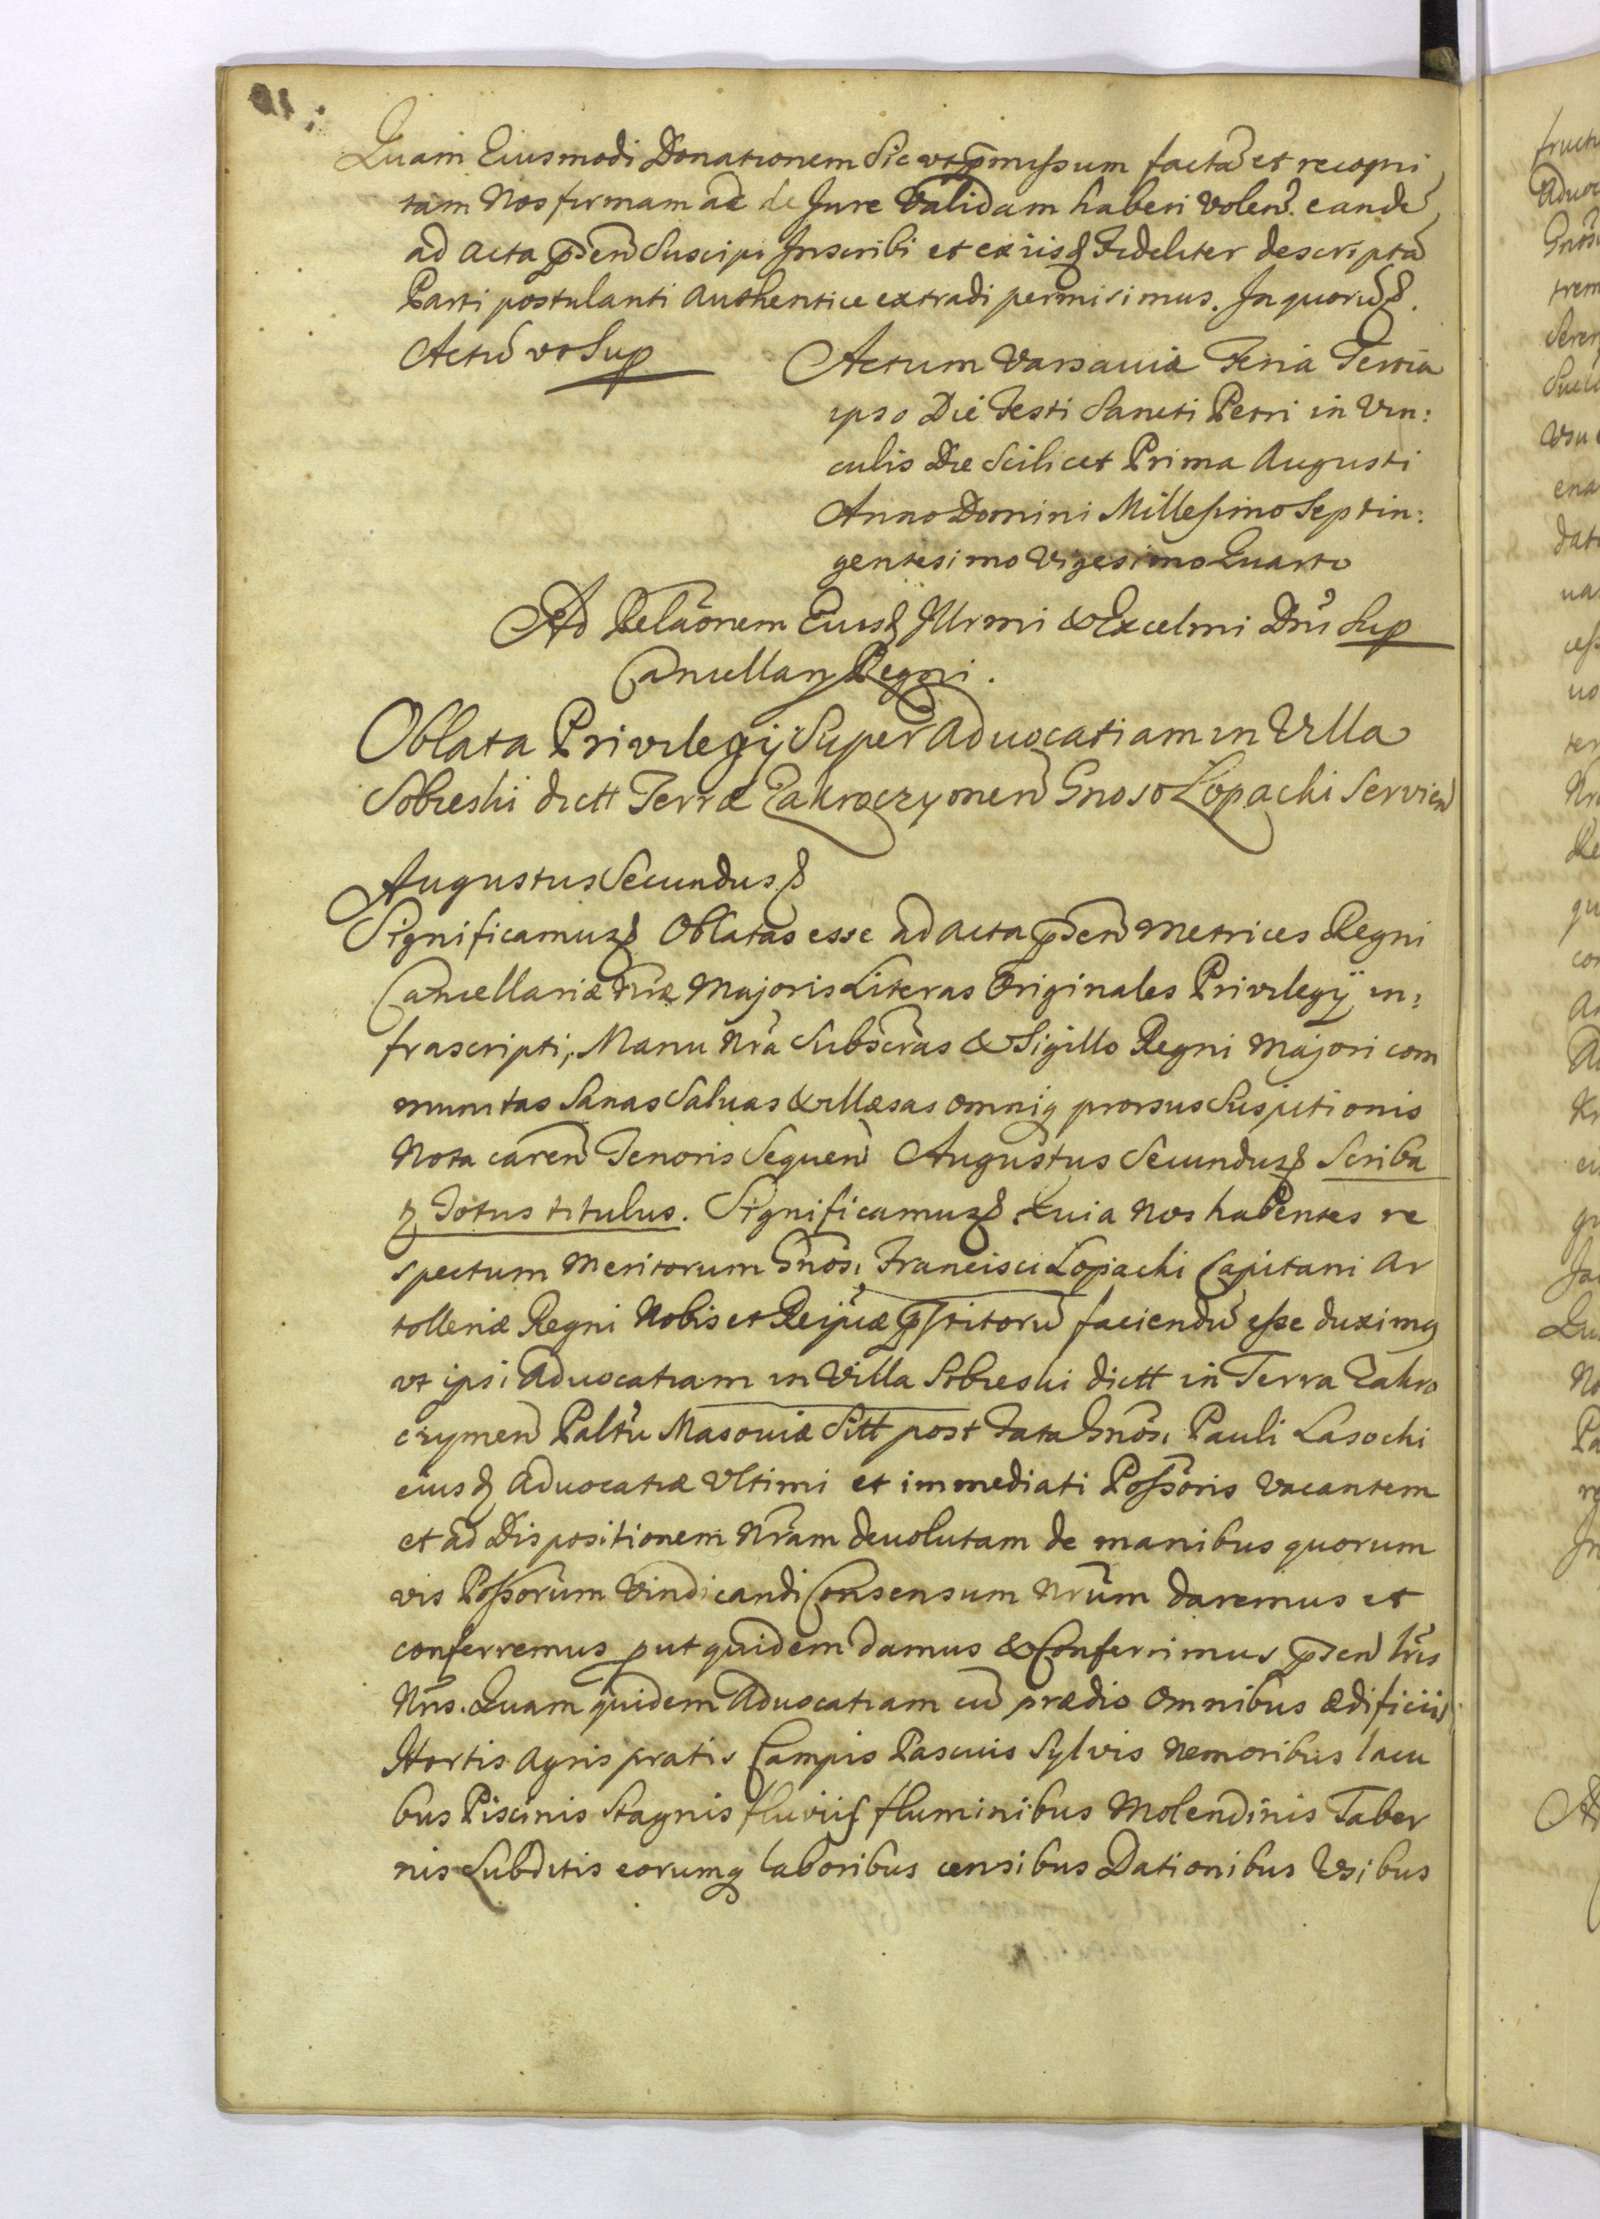 Quam Eiusmodi Donationem Sic ut p̃missum factã et recogni
tam Nos firmam ac de Jure Validam haberi Volen̄. eandẽ
ad acta p̃sen̄ Suscipi Inscribi et ex iisq Fideliter descriptã
Parti postulanti authentice extradi permisimus. In quorũ
Actũ vt Sup
Actum Varsaviæ Feria Tertia
ipso Die Festi Sancti Petri in Vin:
culis Die Scilicet Prima Augusti
Anno Domini Millesimo Septin:
gentesimo Vigesimo Quarto
Ad Relãonem Eiusd Illrmi & Excelmi Dni Sup
Cancellarij Regni.
Oblata Privilegij Super Advocatiam in Villa
Sobieski dictt Terræ Zakroczymen̄ Gnoso Łopacki Servien̄
Augustus Secundus
Significamus Oblatas esse ad acta p̃sen̄ Metrices Regni
Cancellariæ Nræ Majoris Literas Originales Privilegÿ in:
frascripti, Manu Nrã Subscrãs & Sigillo Regni Majori com
munitas Sanas Salvas & illæsas omniq prorsus Suspitionis
Nota caren̄ Tenoris Sequen̄ Augustus Secundus Scriba
Totus titulus. Significamus Quia Nos habentes re
spectum Meritorum Gnosi Francisci Łopacki Capitani Ar
tolleriæ Regni Nobis et Reipcæ p̃stitorũ faciendũ esse duximq
ut ipsi Advocatiam in Villa Sobieski dictt in Terra Zakro
czymen̄ Paltũ Masoviæ Sitt post Fata Gnosi Pauli Lasocki
eiusd Advocatiæ Vltimi et immediati Possoris Vacantem
et ad Dispositionem Nram devolutam de manibus quorum
vis Possorum Vindicandi Consensum Nrum daremus et
conferremus put quidem damus & Conferrimus p̃sen̄ Lris
Nris. Quam quidem Advocatiam cũ prædio Omnibus ædificiis
Hortis Agris pratis Campis Pascuis Sylvis Nemoribus lacu
bus Piscinis Stagnis fluviis fluminibus Molendinis Taber
nis Subditis eorumq laboribus censibus Dationibus Vsibus